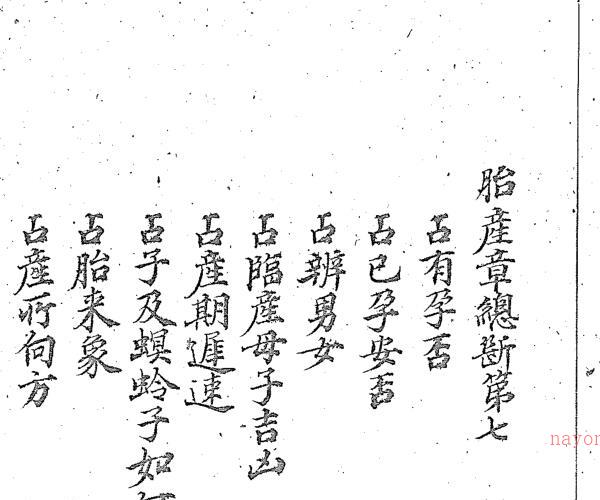 胎產章總斷第七
占有孕否
占已孕安否
占辨男女
占臨產母子吉凶
占產期遲速
占子及螟蛉子如
占胎来象
占產所向方
nayon